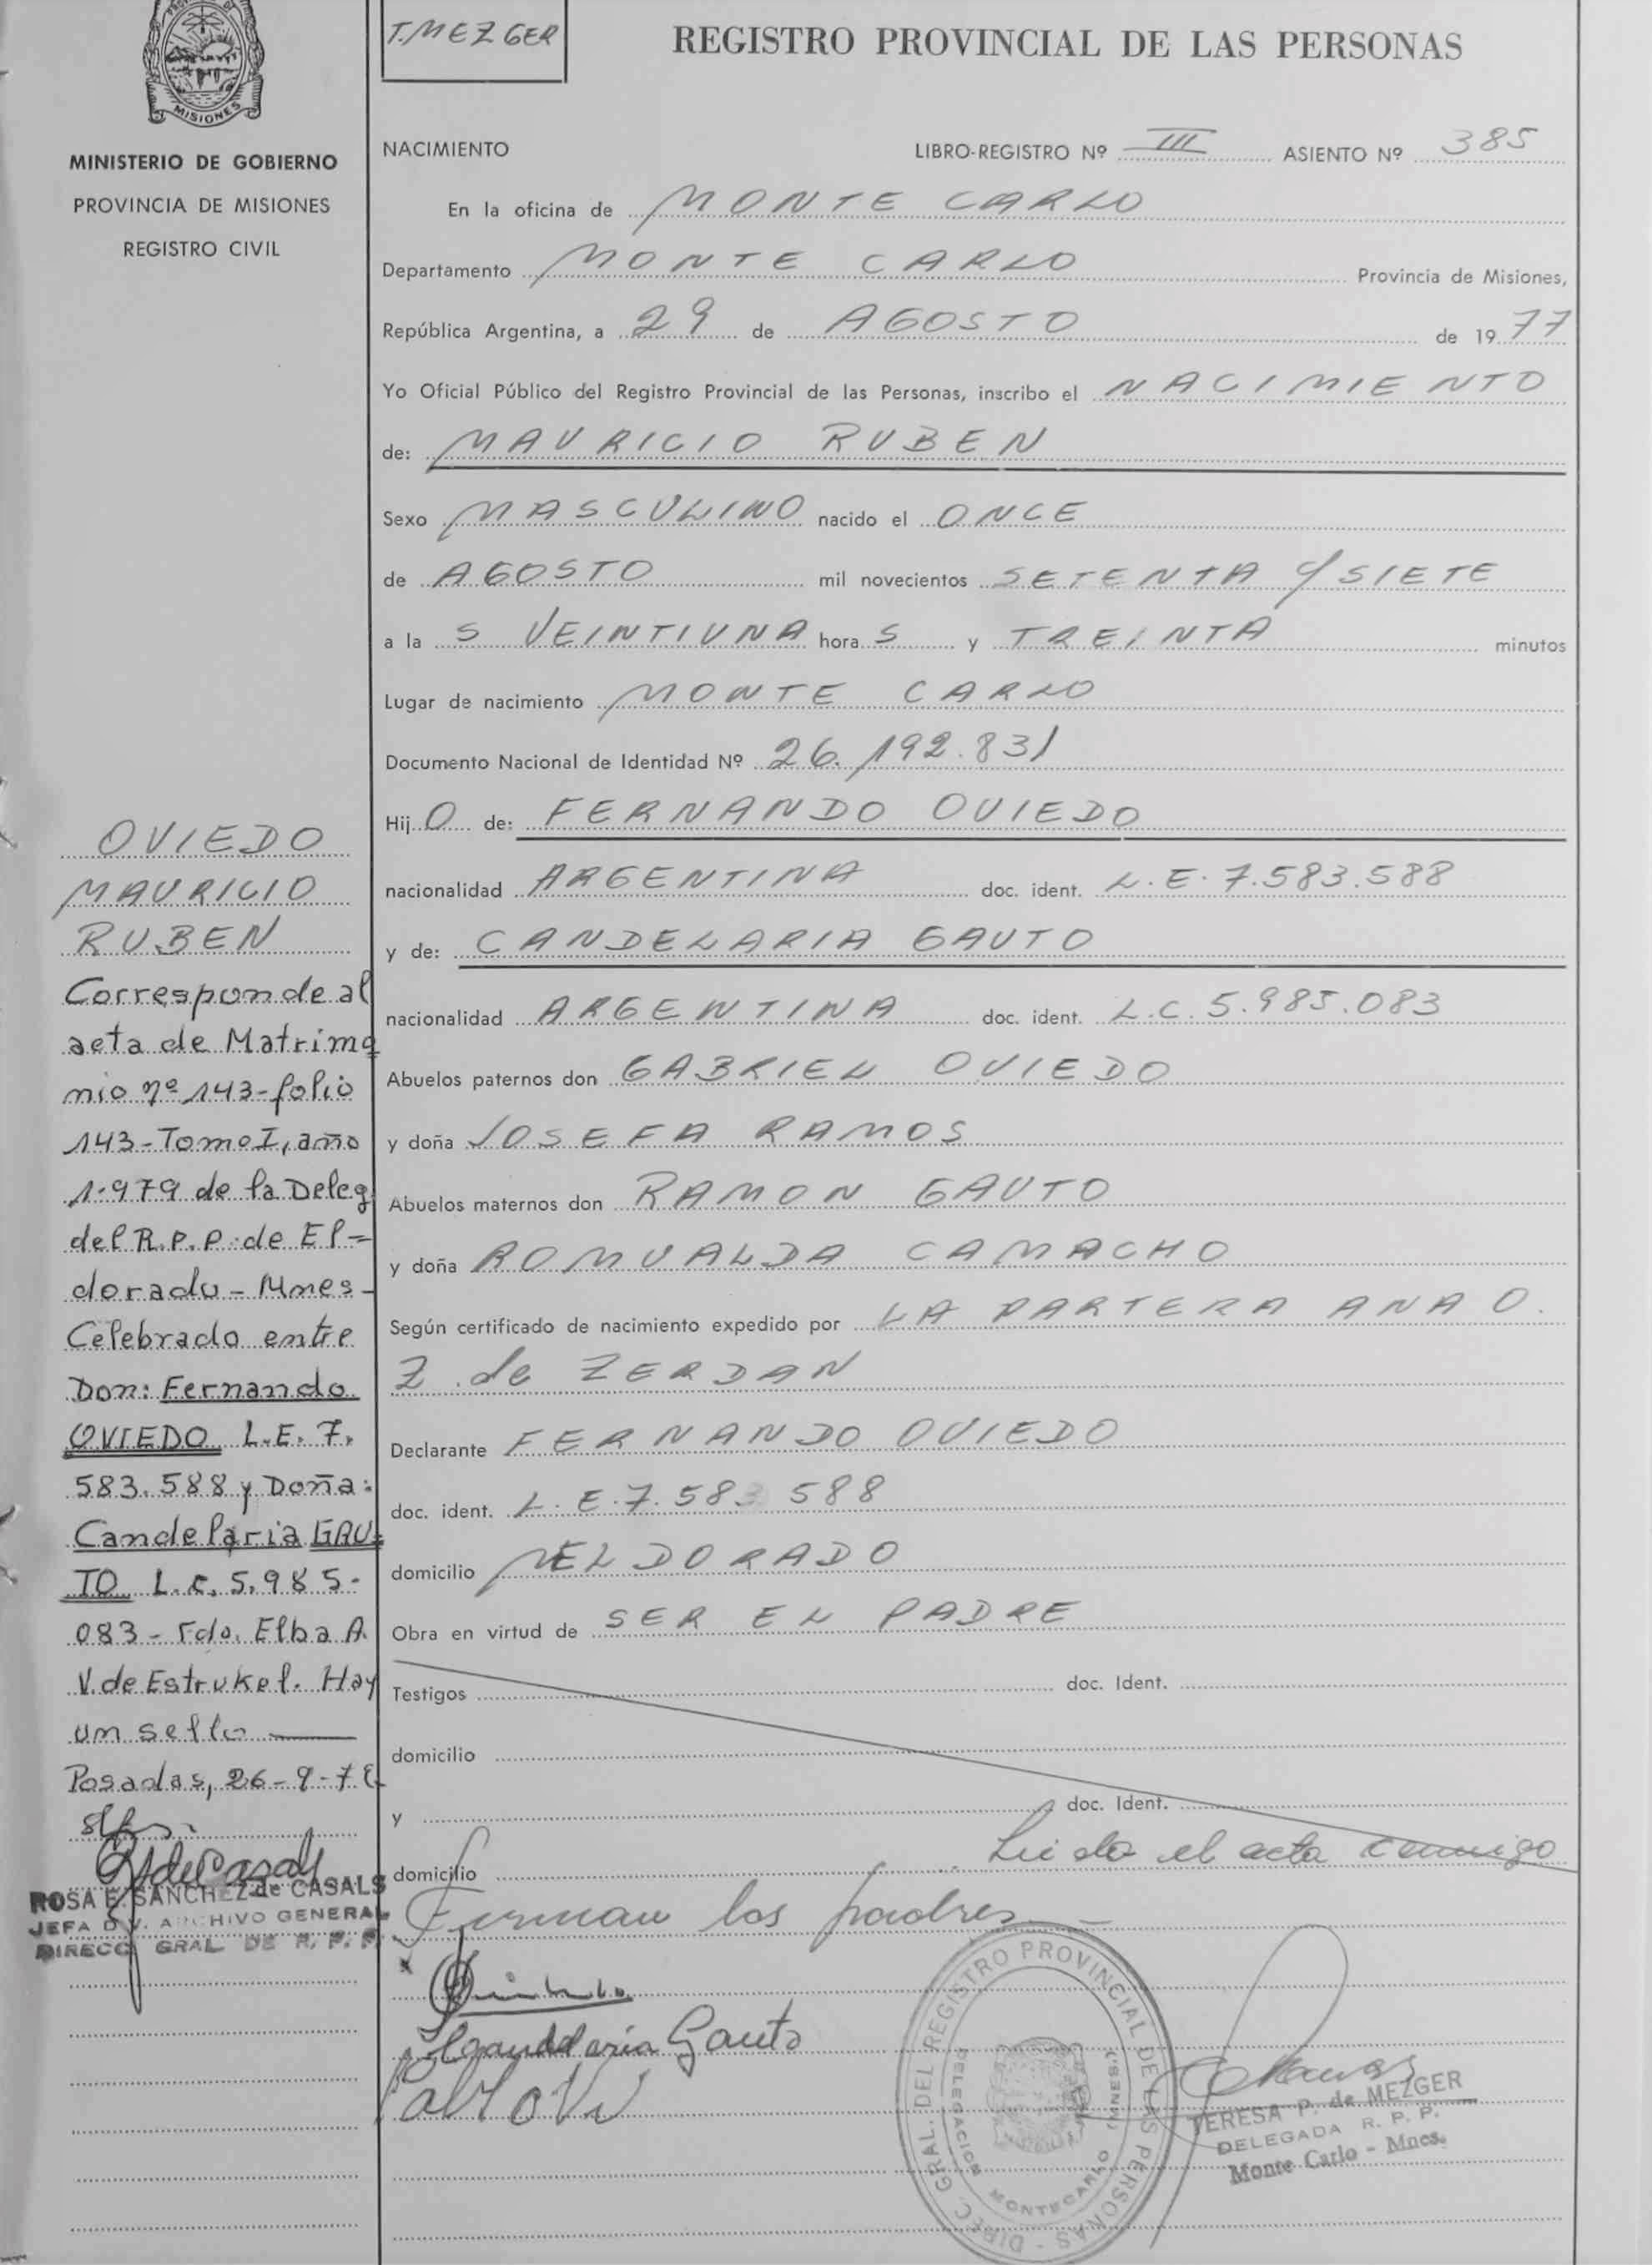 MISIONES
MINISTERIO DE GOBIERNO
PROVINCIA DE MISIONES
REGISTRO CIVIL
OVIEDO
MAURICIO
RUBEN
Corresponde al
acta de Matrimo
nio nº 143-folio
143-Tomo I, año
1.979 de la Deleg
del R.P.P. de El=
dorado - Mnes-
Celebrado entre
Don: Fernando
OVIEDO L.E. 7.
583.588 y Doña:
Candelaria GAU=
TO L.C. 5.985-
083 - Fdo. Elba A.
V. de Estrukel. Hay
un sello
Posadas, 26-9-7
ROSA E. SANCHEZ de CASALS
JEFA DIV. ARCHIVO GENERAL
DIRECC GRAL DE R. P. P.
T. MEZGER
REGISTRO PROVINCIAL DE LAS PERSONAS
NACIMIENTO LIBRO-REGISTRO Nº III ASIENTO Nº 385
En la oficina de MONTE CARLO
Departamento MONTE CARLO Provincia de Misiones,
República Argentina, a 29 de AGOSTO de 1977
Yo Oficial Público del Registro Provincial de las Personas, inscribo el NACIMIENTO
de: MAURICIO RUBEN
Sexo MASCULINO nacido el ONCE
de AGOSTO mil novecientos SETENTA Y SIETE
a la S VEINTIUNA hora S y TREINTA minutos
Lugar de nacimiento MONTE CARLO
Documento Nacional de Identidad Nº 26.192.831
Hij O de: FERNANDO OVIEDO
nacionalidad ARGENTINA doc. ident. L.E. 7.583.588
y de: CANDELARIA GAUTO
nacionalidad ARGENTINA doc. ident. L.C. 5.985.083
Abuelos paternos don GABRIEL OVIEDO
y doña JOSEFA RAMOS
Abuelos maternos don RAMON GAUTO
y doña ROMUALDA CAMACHO
Según certificado de nacimiento expedido por LA PARTERA ANA O.
Z. de ZERDAN
Declarante FERNANDO OVIEDO
doc. ident. L.E. 7.583 588
domicilio ELDORADO
Obra en virtud de SER EL PADRE
Testigos doc. Ident.
domicilio
y doc. Ident.
domicilio Leida el acta conmigo
Firman los padres
Candelaria Gauto
DIREC. GRAL. DEL REGISTRO PROVINCIAL DE LAS PERSONAS -
DELEGACION MONTECARLO (MNES.)
TERESA P. de MEZGER
DELEGADA R. P. P.
Monte Carlo - Mnes.